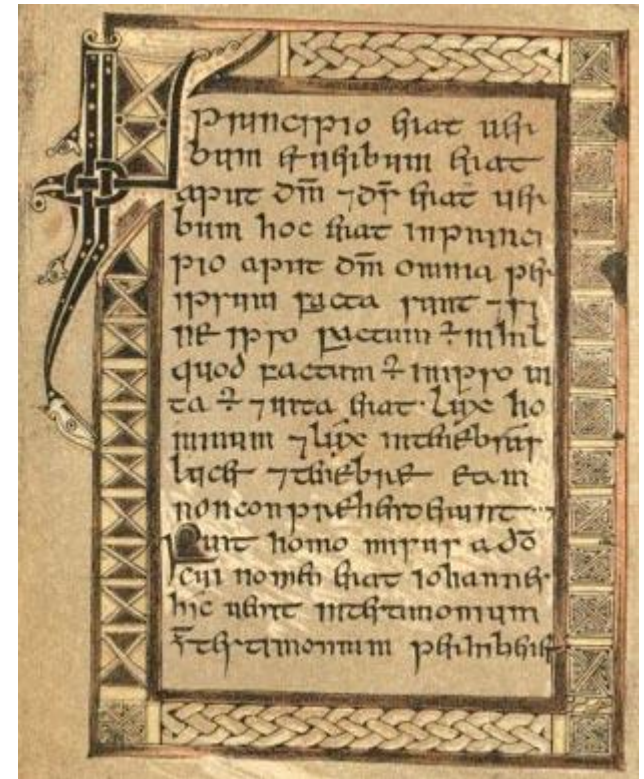 In
principio erat uer
bum et uerbum erat
aput dm̄ ⁊ ds̄ erat uer
bum hoc erat in princi
pio aput dm̄ omnia per
ipsum facta sunt ⁊ si
ne ipso factum ÷ nihil
quod factum ÷ in ipso ui
ta ÷ ⁊ uita erat lux ho
minum ⁊ lux in tenebris
lucet ⁊ tenebre eam
non conprehenderunt
Fuit homo misus a dō
cui nomen erat iohannes
hic uenit in testimonium
testimonium perhiberet